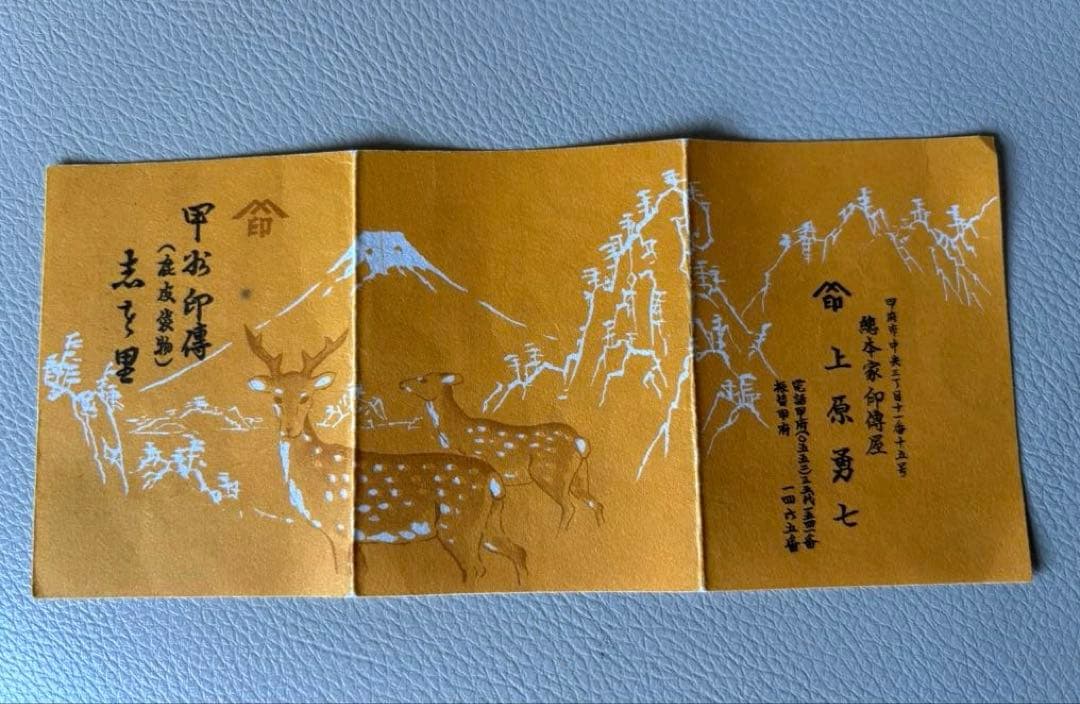 印
甲州印傳
(鹿皮袋物)
志を里
甲府市中央三丁目十一番十五号
總本家印傳屋
印
上原勇七
電話甲府(〇五五二)三三代一五四一番
振替甲府 一四六五番